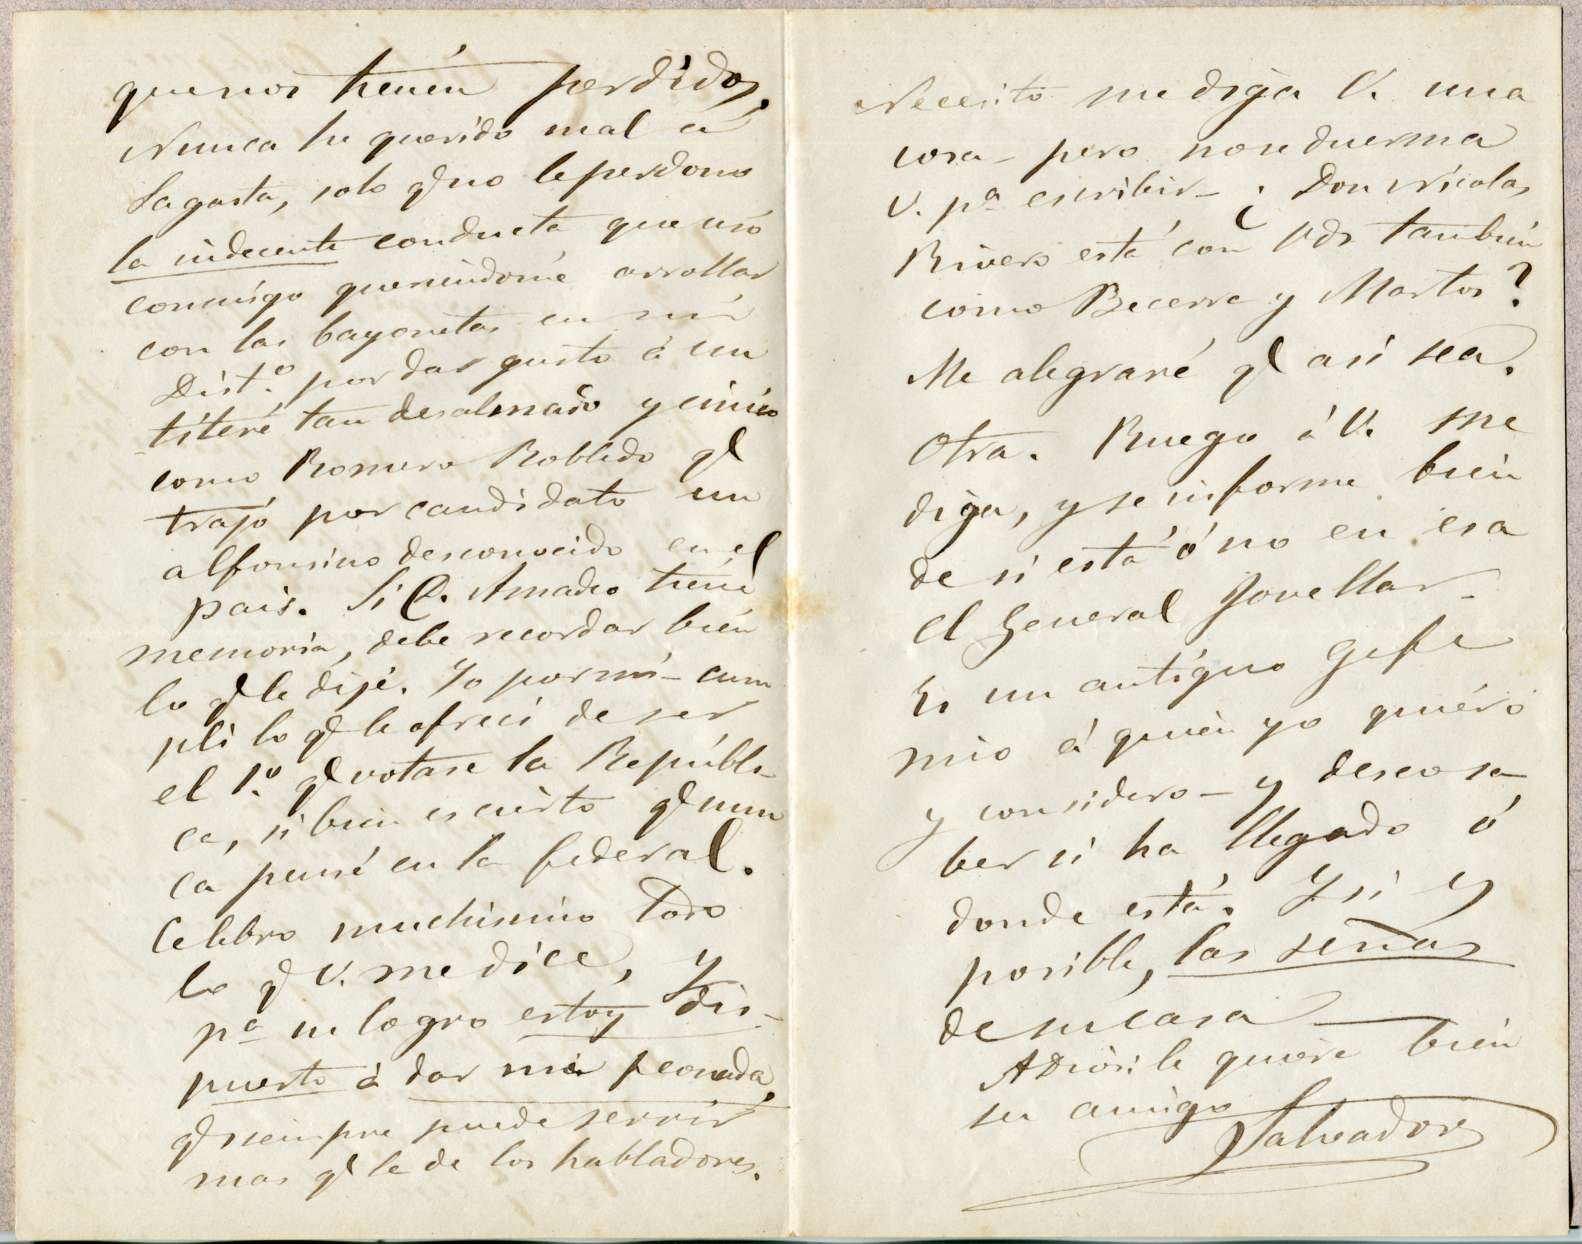 que nos tienén perdidos.
Nunca hé querido mal á
Sagasta, solo ql no le perdono
la indecente conducta que usó
conmigo queriendome arrollar
con las bayonetas en mi
Dist.º por dar gusto á un
titeré tan desalmado y cinico
como Romero Robledo ql
trajó por candidato un
alfonsino desconocido en el
pais. Si D. Amadeo tiene
memoria, debe recordar bién
lo ql le dijé. Yo por mi - cum
pli lo ql le ofreci de ser
el 1.º ql votase la Repúbli-
ca, si bien es cierto ql nun
cá pensé en la federal.
Celebro muchisimo todo
lo ql V. me dice, y
pª su logro estoy dis-
puesto á dar mi peonada,
ql siempre puede servir
mas ql la de los habladores.
Necesito me diga V. una
cosa - pero no se duerma
V. pª escribir - ¿Don Nicolas
Rivero está con Vds tambien
como Becerra y Martos?
Me alegraré ql asi sea.
Otra. Ruego á V. me
diga, y se informe bien
de si está ó no en esa
el General Jovellar -
Es un antíguo Gefe
mio á quien yo quiéro
y considero - y deseo sa-
ber si ha llegado ó
donde está. Y si es
posible, las señas
de su casa —
A Dios: le quiere bien
su amigo
Salvador